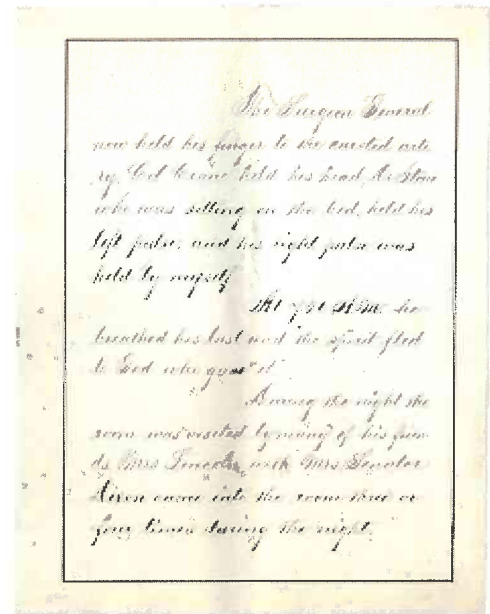 The Surgeon General
now held his finger to the carotid arte
ry, Col Crane held his head, Dr Stone
who was sitting on the bed, held his
left pulse, and his right pulse was
held by myself
At 7.20 A.M. he
breathed his last and "the spirit fled
to God who gave it"
During the night the
room was visited by many of his frien
ds Mrs Lincoln with Mrs Senator
Dixon came into the room three or
four times during the night.